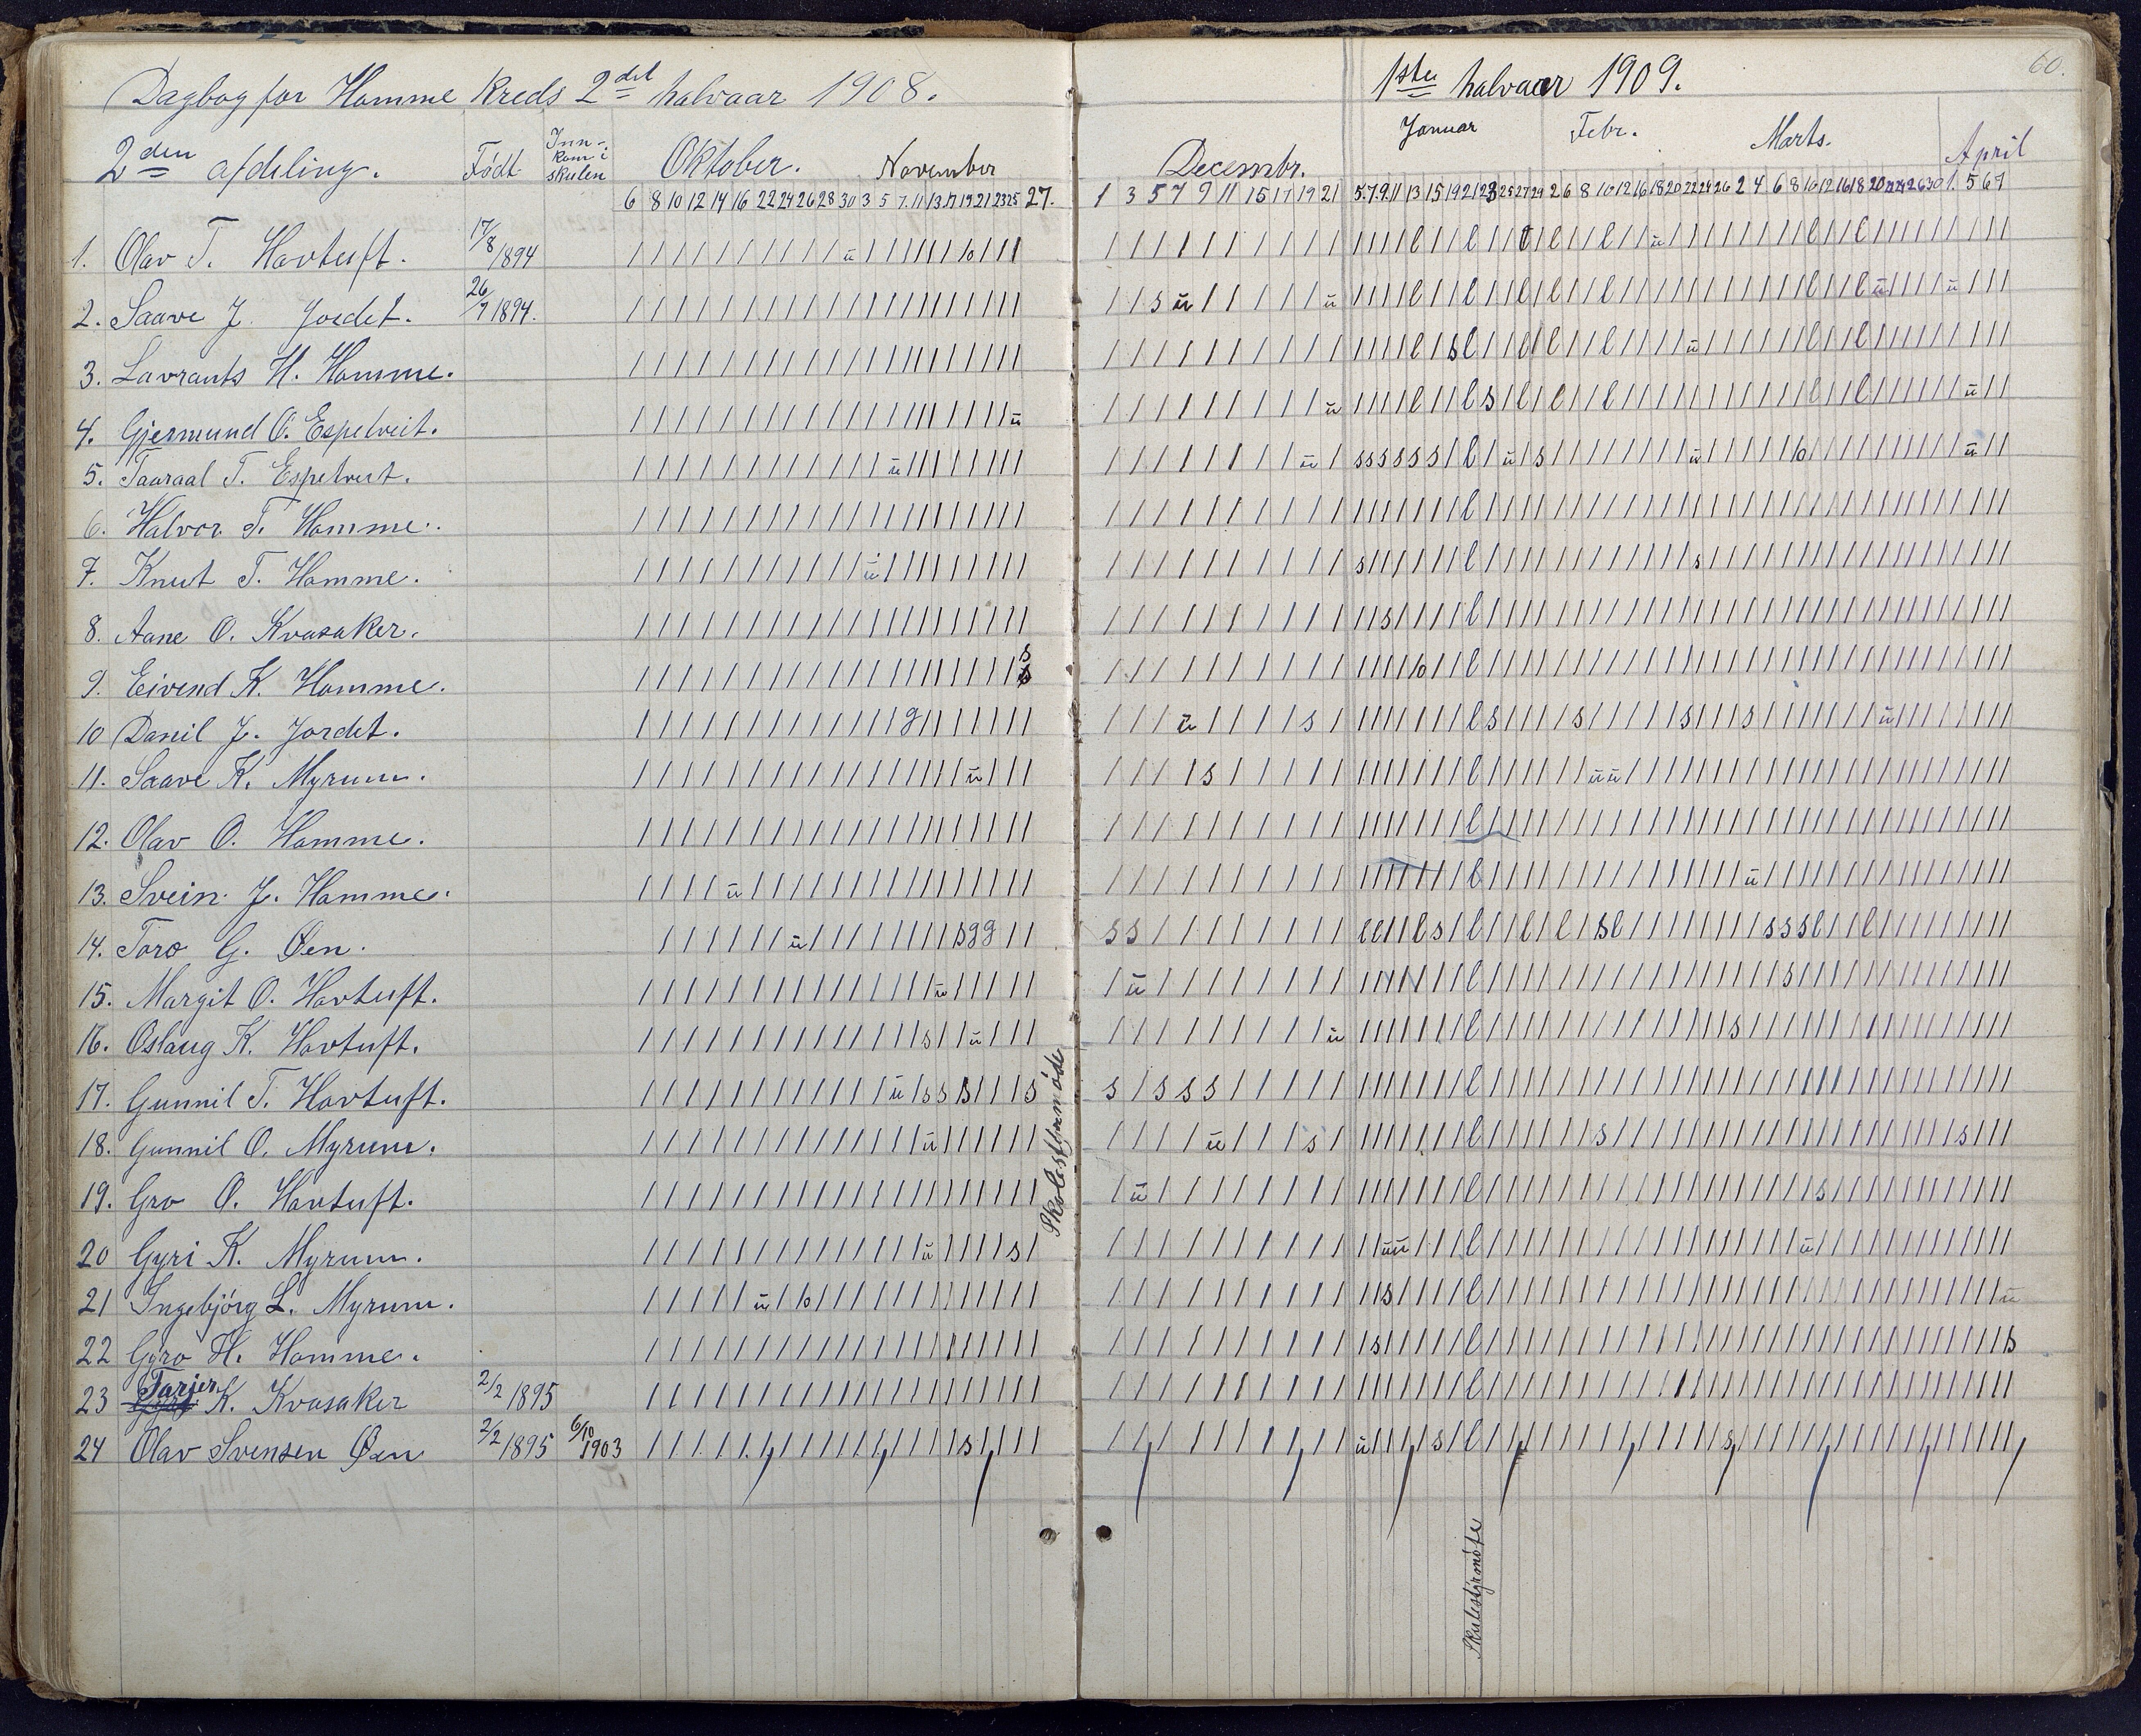 Dagbog for Homme Kreds 2det halvaar 1908.
2den afdeling. Født Inn-kom i skulen Oktober. November
6 8 10 12 14 16 22 24 26 28 30 3 5 7 11 13 17 19 21 23 25 27.
1. Olav T. Hovtuft. 17/8 1894
2. Saave J. Jordet. 26/7 1894.
3. Lavrants H. Homme.
4. Gjermund O. Espetveit.
5. Taaraal T. Espetveit.
6. Halvor T. Homme.
7. Knut T. Homme.
8. Aane O. Kvasaker.
9. Eivind K. Homme.
10 Daniel J. Jordet.
11. Saave K. Myrum.
12. Olav O. Homme.
13. Svein J. Homme.
14. Toro G. Øen.
15. Margit O. Hovtuft.
16. Oslaug K. Hovtuft.
17. Gunnil T. Hovtuft.
18. Gunnil O. Myrum.
19. Gro O. Hovtuft.
20 Gyri K. Myrum.
21 Ingebjörg L. Myrum.
22 Gyro H. Homme.
23 Tarjer K. Kvasaker 2/2 1895
24 Olav Svensen Øen 2/2 1895 6/10 1903
Skolestyrmöde
60.
1ste halvaar 1909.
Decembr. Januar Febr. Marts. April
1 3 5 7 9 11 15 17 19 21 5 7 9 11 13 15 19 21 23 25 27 29 2 6 8 10 12 16 18 20 22 24 26 2 4 6 8 10 12 16 18 20 22 24 26 30 1. 5 6 7
Skulestyrmöte